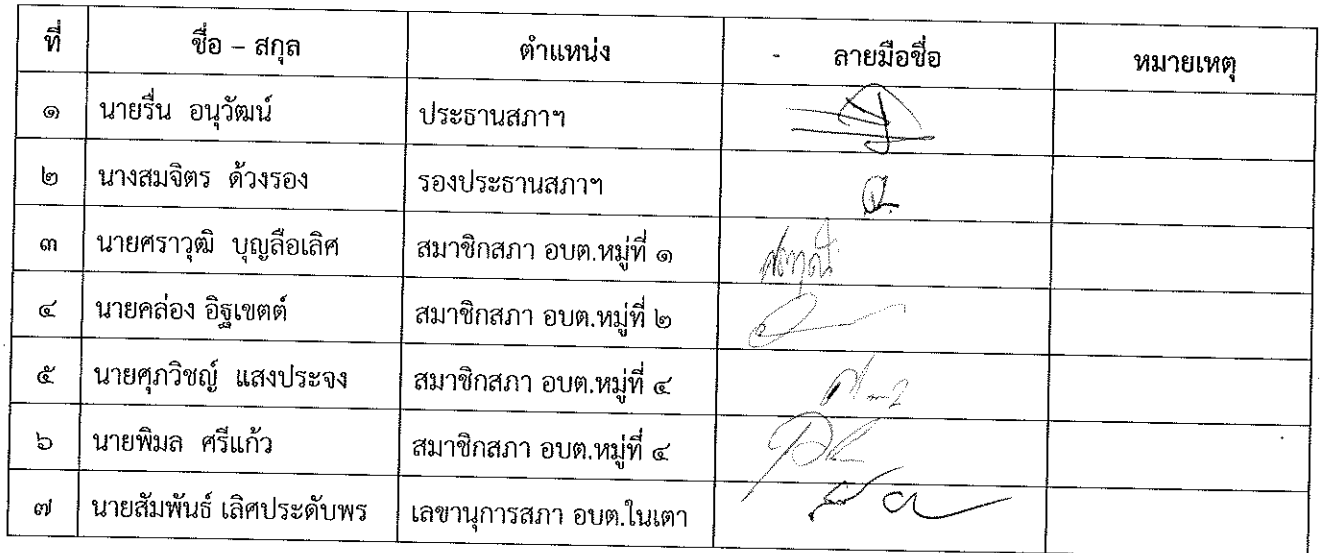 ที่ ชื่อ – สกุล ตำแหน่ง - ลายมือชื่อ หมายเหตุ
๑ นายรื่น อนุวัฒน์ ประธานสภาฯ
๒ นางสมจิตร ด้วงรอง รองประธานสภาฯ
๓ นายศราวุฒิ บุญลือเลิศ สมาชิกสภา อบต.หมู่ที่ ๑
๔ นายคล่อง อิฐเขตต์ สมาชิกสภา อบต.หมู่ที่ ๒
๕ นายศุภวิชญ์ แสงประจง สมาชิกสภา อบต.หมู่ที่ ๔
๖ นายพิมล ศรีแก้ว สมาชิกสภา อบต.หมู่ที่ ๔
๗ นายสัมพันธ์ เลิศประดับพร เลขานุการสภา อบต.ในเตา